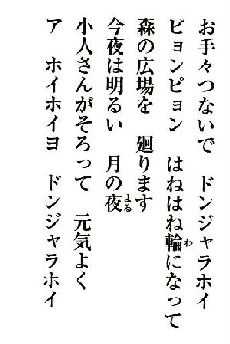 お手々つないで　ドンジャラホイ
ピョンピョン　はねはね輪になって
森の広場を　廻ります
今夜は明るい　月の夜
小人さんがそろって　元気よく
ア　ホイホイヨ　ドンジャラホイ